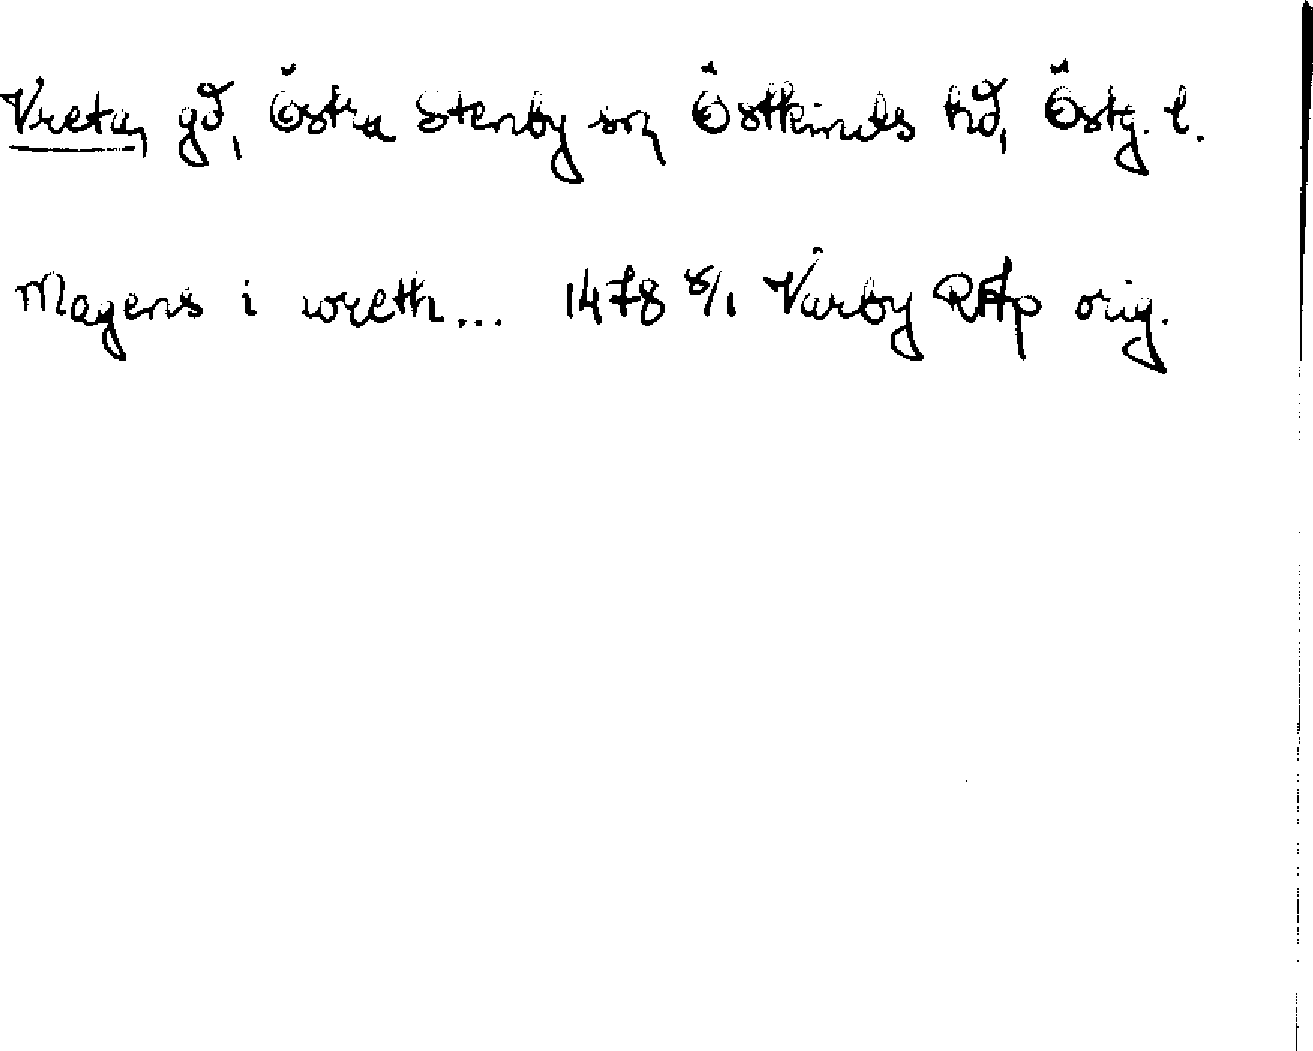 Vreta, gd, Östra Stenby sn, Östkinds hd, Östg. l.
Magens i wreth... 1478 8/1 Vårby RAp orig.